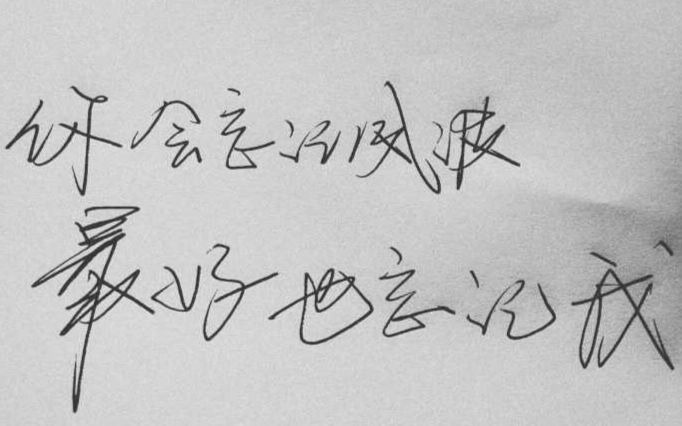 你会忘记风波
最好也忘记我